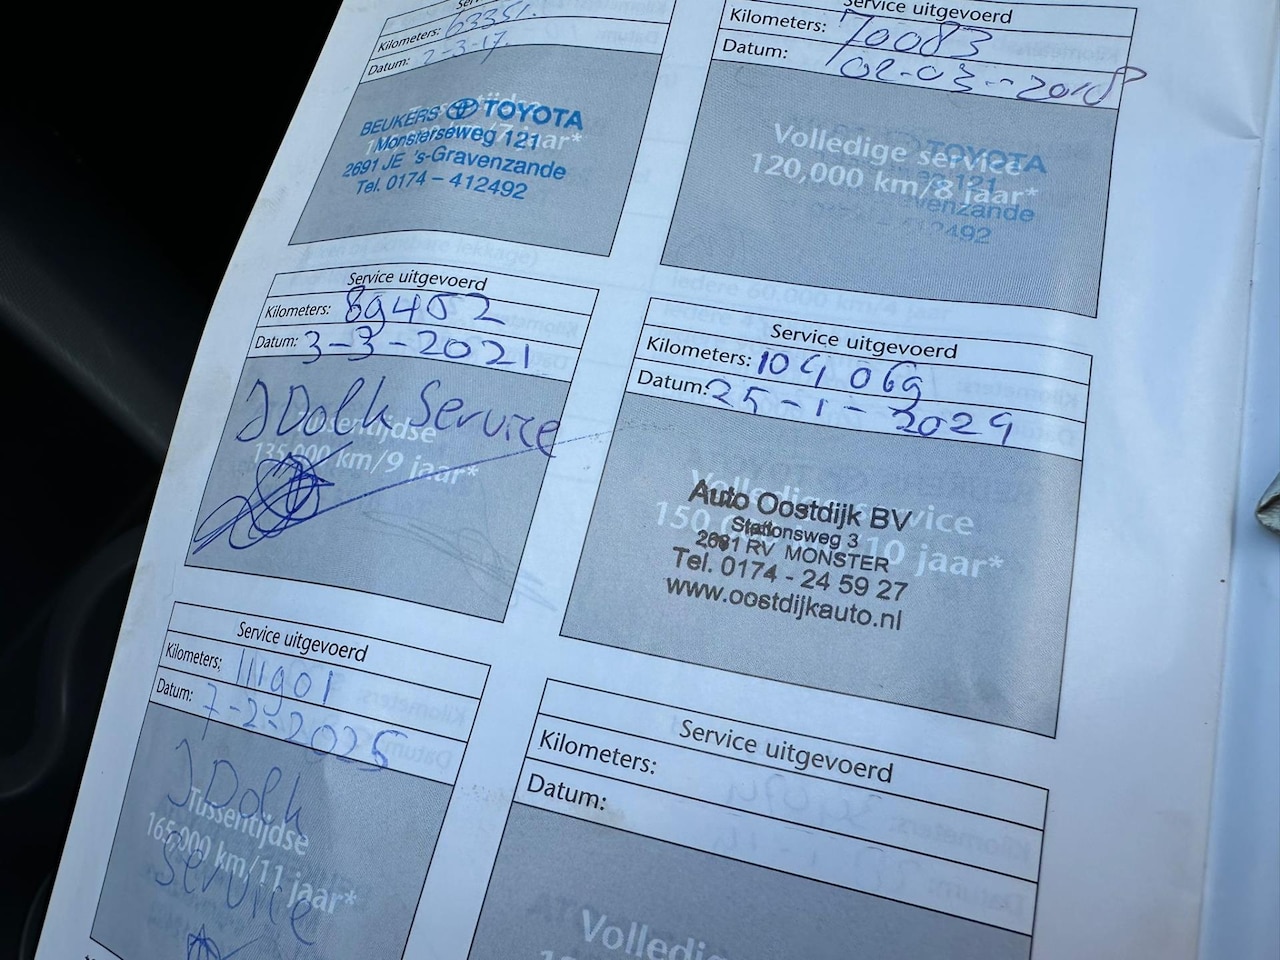 Kilometers: 63351.
Datum: 2-3-17.
Tussentijdse
BEUKERS TOYOTA
Monsterseweg 121
2691 JE 's-Gravenzande
Tel. 0174 - 412492
Service uitgevoerd
Kilometers: 70083
Datum: 02-03-2018
Volledige service
120,000 km/8 jaar*
TOYOTA
121
venzande
412492
Service uitgevoerd
Kilometers: 89452
Datum: 3-3-2021
J Dolk Service
Tussentijdse
135,000 km/9 jaar*
Service uitgevoerd
Kilometers: 104069
Datum: 25-1-2024
Volledige service
150,000 km/10 jaar*
Auto Oostdijk BV
Stationsweg 3
2681 RV MONSTER
Tel. 0174 - 24 59 27
www.oostdijkauto.nl
Service uitgevoerd
Kilometers: 111901
Datum: 7-2-2025
J Dolk
Service
Tussentijdse
165,000 km/11 jaar*
Service uitgevoerd
Kilometers:
Datum: